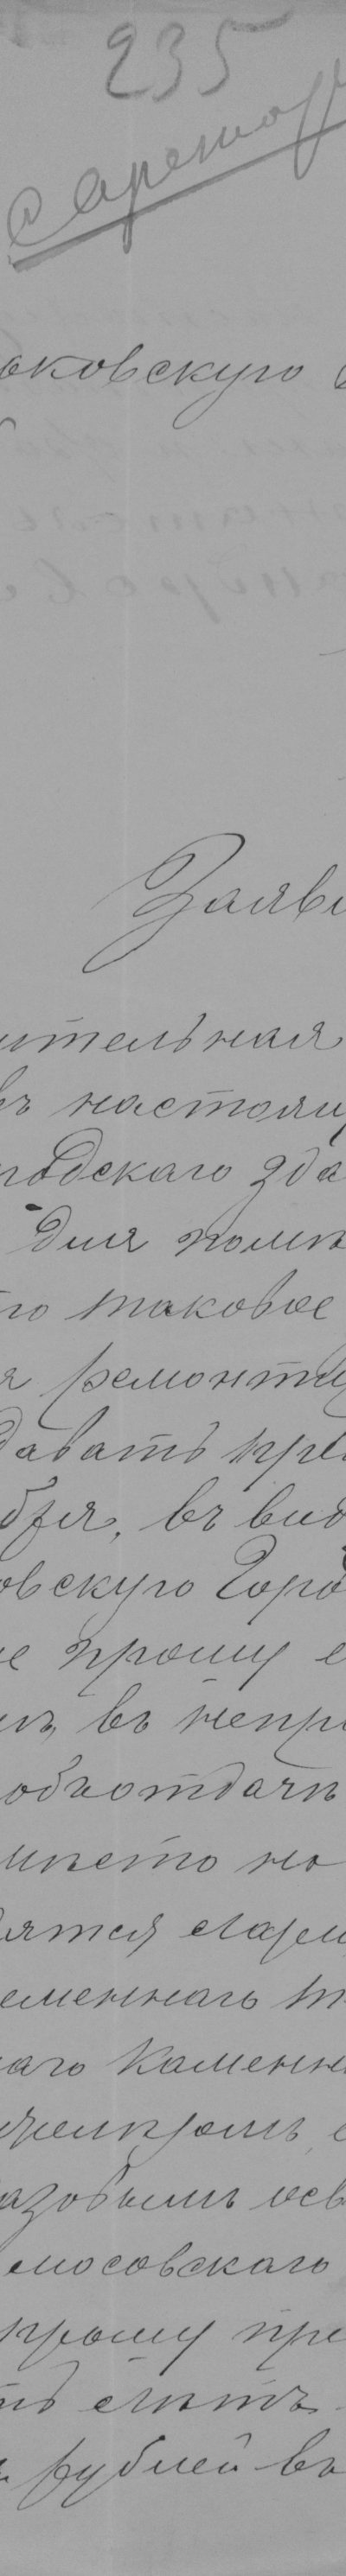 235
ьковскую
Заяв
ительная
въ настоящ
годскаго зда
для помѣ
то таковое
я ремонти
давать пре
бря, въ вид
овскую Горо
е прошу
въ непр
объ отдачѣ
мѣсто на
дятся
еменнаго т
наго каменн
азовымъ осв
мосовскаго
прошу пре
рублей въ